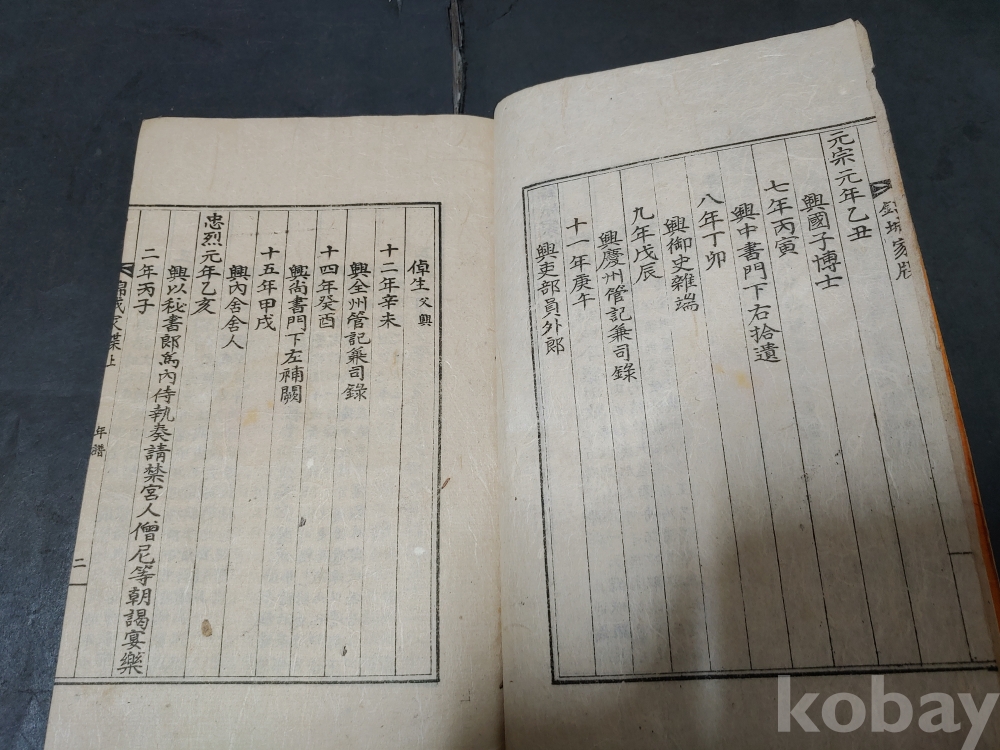 元宗元年乙丑
興國子博士
七年丙寅
興中書門下右拾遺
八年丁卯
興御史雜端
九年戊辰
興慶州管記兼司錄
十一年庚午
興吏部員外郎
倬生 父興
十二年辛未
興全州管記兼司錄
十四年癸酉
興尚書門下左補闕
十五年甲戌
興內舍舍人
忠烈元年乙亥
興以秘書郎爲內侍執奏請禁宮人僧尼等朝謁宴樂
二年丙子
錦城家牒上
年譜
二
kobay